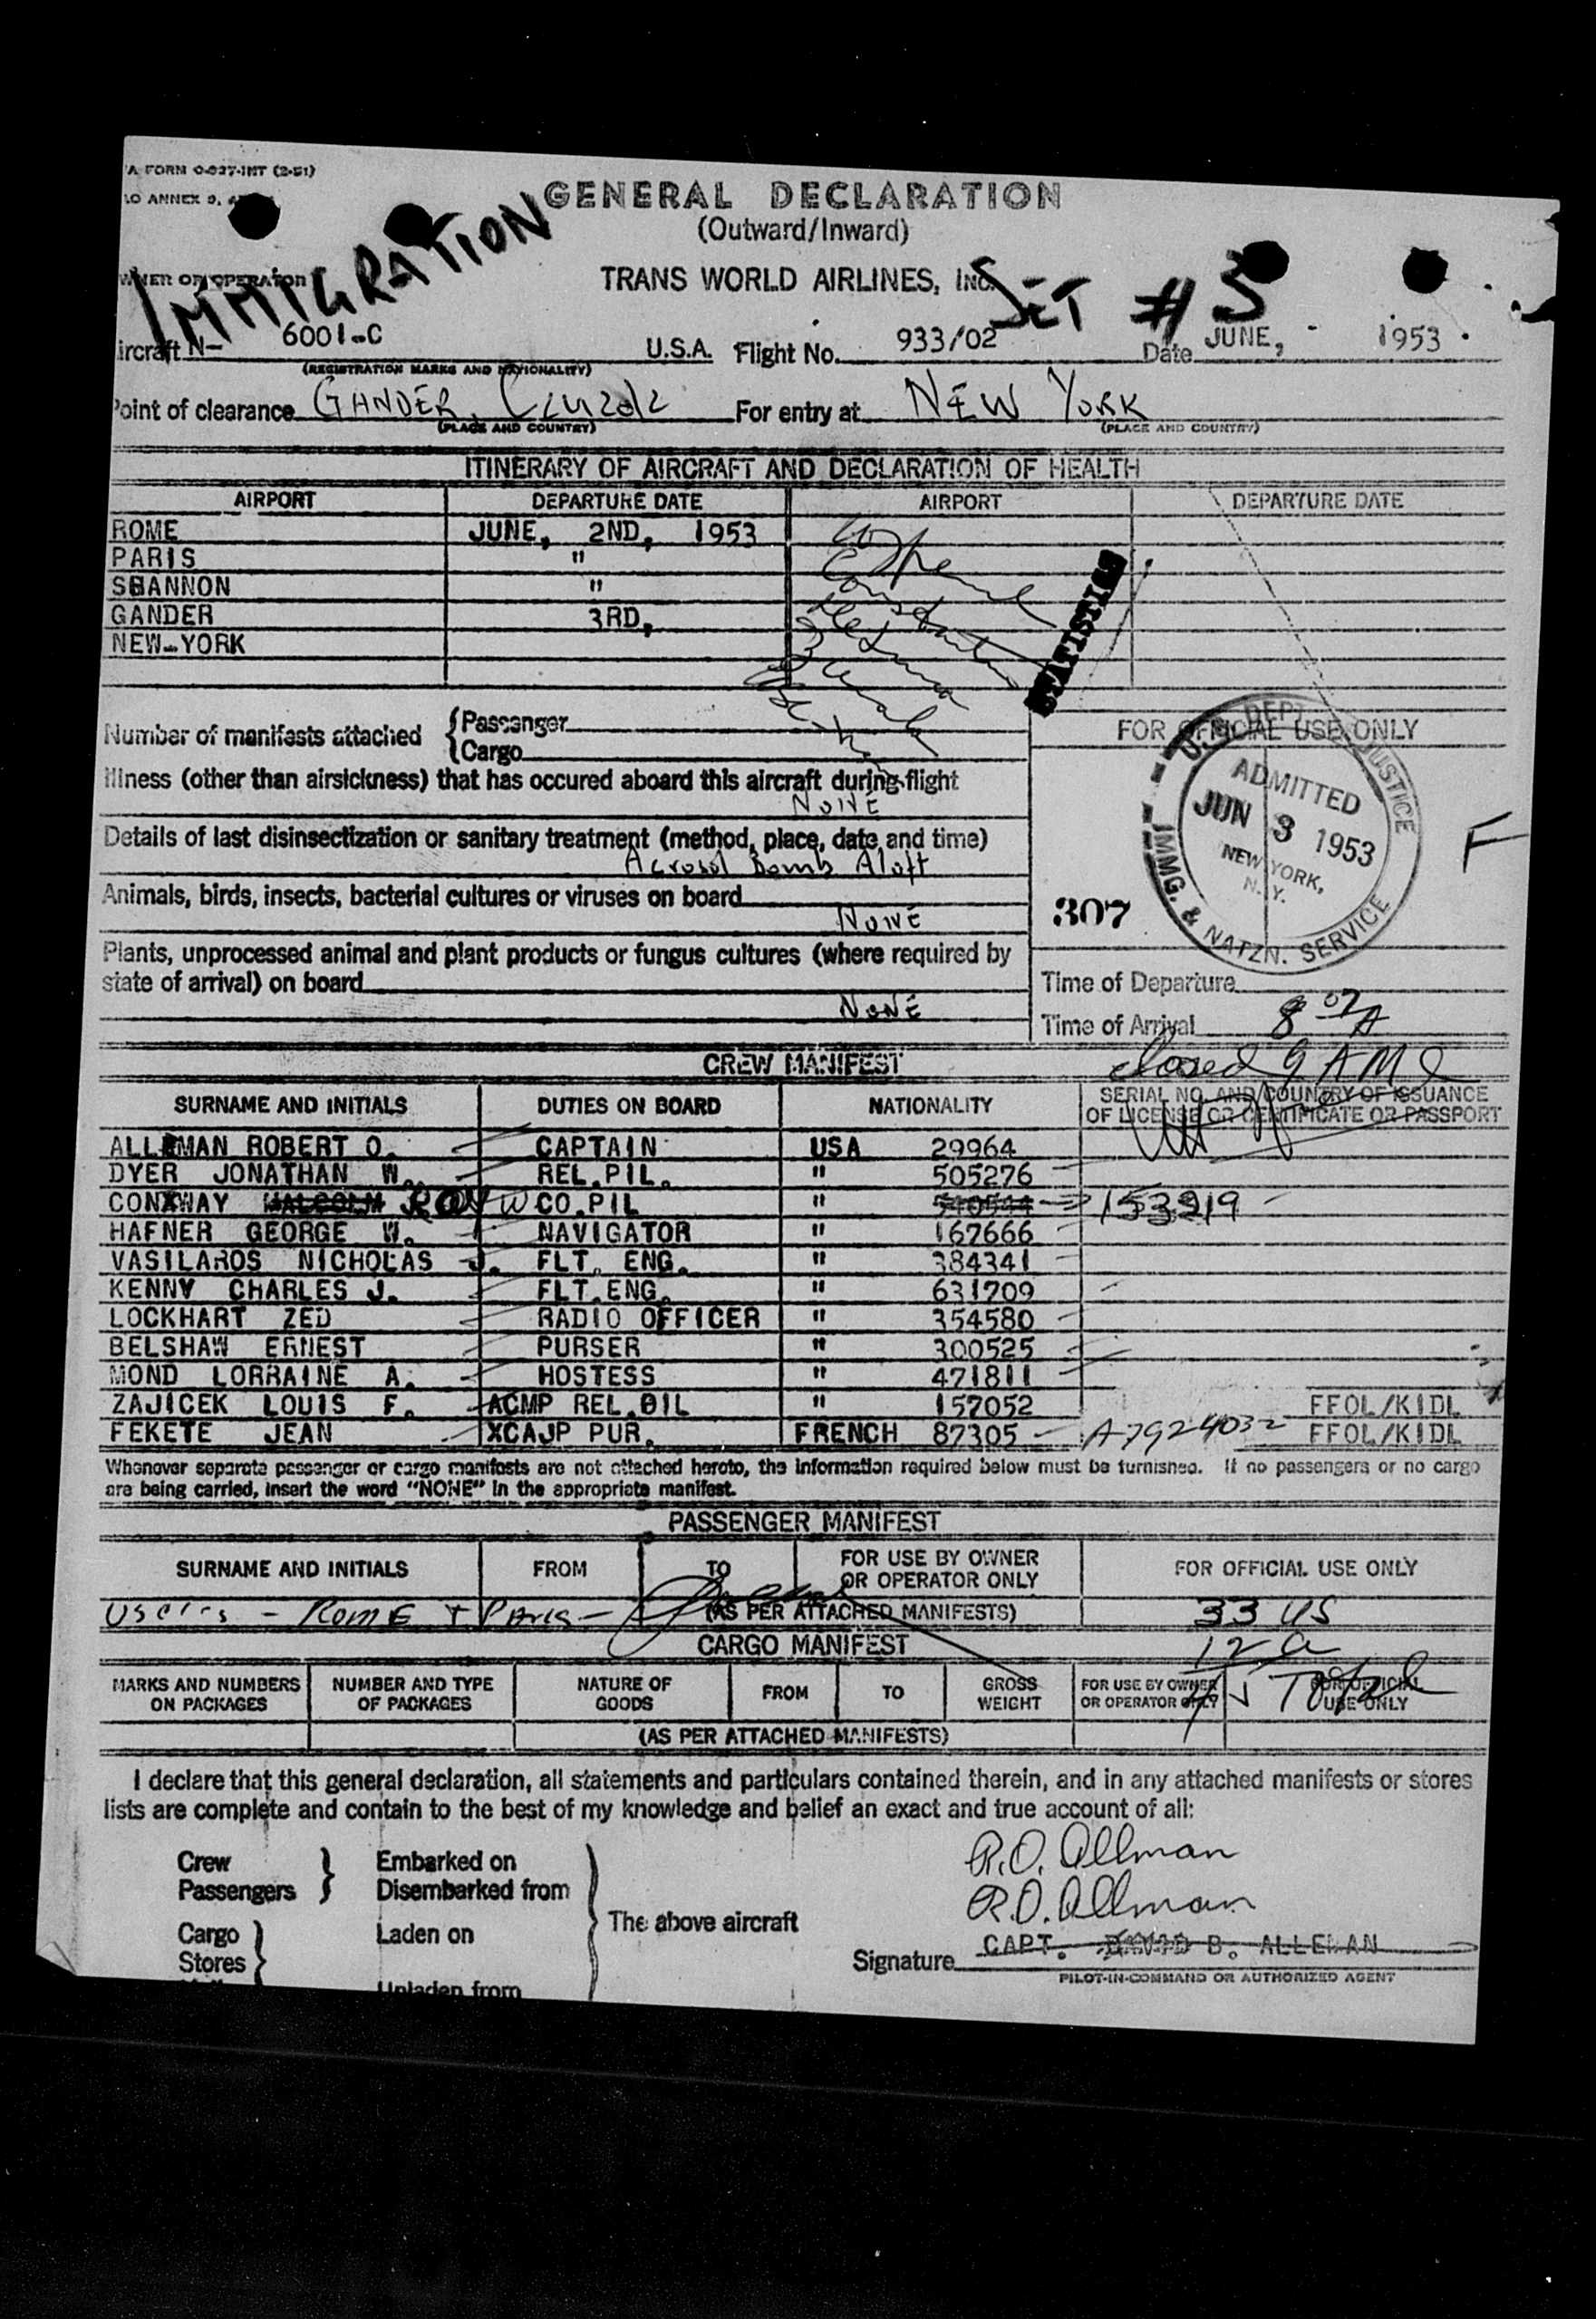 A FORM O-827-INT (2-51)
GENERAL DECLARATION
(Outward/Inward)
IMMIGRATION
OWNER OR OPERATOR
TRANS WORLD AIRLINES, INC.
SET # 3
Aircraft N- 6001-C U.S.A. Flight No. 933/02 Date JUNE, - 1953
(REGISTRATION MARKS AND NATIONALITY)
Point of clearance GANDER, Canada For entry at NEW YORK
(PLACE AND COUNTRY) (PLACE AND COUNTRY)
ITINERARY OF AIRCRAFT AND DECLARATION OF HEALTH
AIRPORT DEPARTURE DATE AIRPORT DEPARTURE DATE
ROME JUNE, 2ND, 1953
PARIS "
SHANNON "
GANDER 3RD,
NEW-YORK
STATISTICS
Number of manifests attached {Passenger
{Cargo
FOR OFFICIAL USE ONLY
U.S. DEPT. JUSTICE
ADMITTED
JUN 3 1953
NEW YORK,
N. Y.
IMMG. & NATZN. SERVICE
F
307
Illness (other than airsickness) that has occured aboard this aircraft during flight
NONE
Details of last disinsectization or sanitary treatment (method, place, date and time)
Aerosol Bomb Aloft
Animals, birds, insects, bacterial cultures or viruses on board
NONE
Plants, unprocessed animal and plant products or fungus cultures (where required by
state of arrival) on board
NONE
Time of Departure
Time of Arrival 8 07 A
CREW MANIFEST
closed 9 AM
SURNAME AND INITIALS DUTIES ON BOARD NATIONALITY SERIAL NO. AND COUNTRY OF ISSUANCE
OF LICENSE OR CERTIFICATE OR PASSPORT
ALLEMAN ROBERT O. CAPTAIN USA 29964
DYER JONATHAN W. REL.PIL. " 505276
CONWAY MALCOLM ROY W CO.PIL " 540544 153219
HAFNER GEORGE W. NAVIGATOR " 167666
VASILAROS NICHOLAS J. FLT. ENG. " 384341
KENNY CHARLES J. FLT.ENG. " 631709
LOCKHART ZED RADIO OFFICER " 354580
BELSHAW ERNEST PURSER " 300525
MOND LORRAINE A. HOSTESS " 471811
ZAJICEK LOUIS F. ACMP REL.OIL " 157052 FFOL/KIDL
FEKETE JEAN XCAJP PUR. FRENCH 87305 A7924032 FFOL/KIDL
Whenever separate passenger or cargo manifests are not attached hereto, the information required below must be furnished. If no passengers or no cargo
are being carried, insert the word "NONE" in the appropriate manifest.
PASSENGER MANIFEST
SURNAME AND INITIALS FROM TO FOR USE BY OWNER
OR OPERATOR ONLY FOR OFFICIAL USE ONLY
ROME + Paris - (AS PER ATTACHED MANIFESTS) 33 US
12 a
45 Total
CARGO MANIFEST
MARKS AND NUMBERS
ON PACKAGES NUMBER AND TYPE
OF PACKAGES NATURE OF
GOODS FROM TO GROSS
WEIGHT FOR USE BY OWNER
OR OPERATOR ONLY FOR OFFICIAL
USE ONLY
(AS PER ATTACHED MANIFESTS)
I declare that this general declaration, all statements and particulars contained therein, and in any attached manifests or stores
lists are complete and contain to the best of my knowledge and belief an exact and true account of all:
Crew
Passengers } Embarked on
Disembarked from
Cargo
Stores } Laden on
Unladen from
The above aircraft
R.O. Allman
R.O. Allman
Signature CAPT. DAVID B. ALLEMAN
PILOT-IN-COMMAND OR AUTHORIZED AGENT